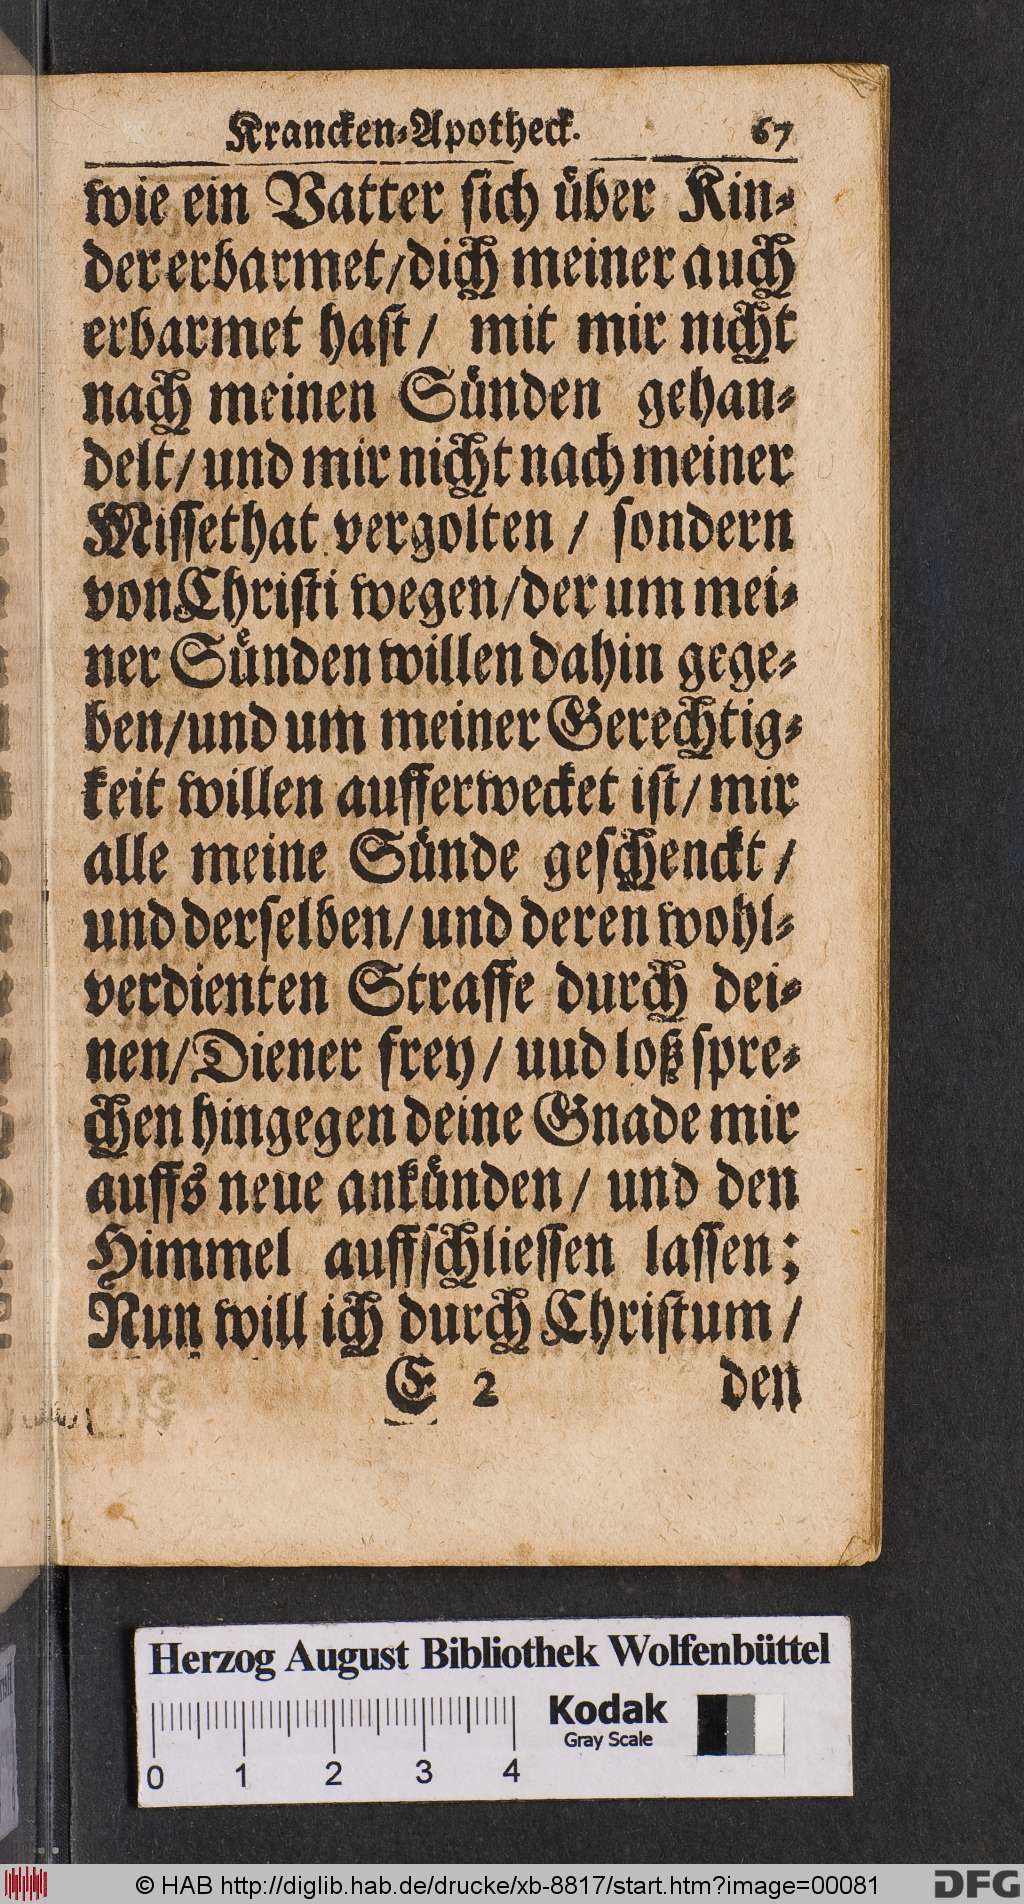 Krancken-Apotheck. 67
wie ein Vatter sich uͤber Kin-
der erbarmet/dich meiner auch
erbarmet hast/ mit mir nicht
nach meinen Suͤnden gehan-
delt/ und mir nicht nach meiner
Missethat vergolten / sondern
von Christi wegen/der um mei-
ner Suͤnden willen dahin gege-
ben/und um meiner Gerechtig-
keit willen aufferwecket ist/ mir
alle meine Suͤnde geschenckt /
und derselben/ und deren wohl-
verdienten Straffe durch dei-
nen/Diener frey/ uud loß spre-
chen hingegen deine Gnade mir
auffs neue ankuͤnden/ und den
Himmel auffschliessen lassen;
Nun will ich durch Christum /
E 2 den
Herzog August Bibliothek Wolfenbüttel
Kodak
Gray Scale
0 1 2 3 4
© HAB http://diglib.hab.de/drucke/xb-8817/start.htm?image=00081
DFG